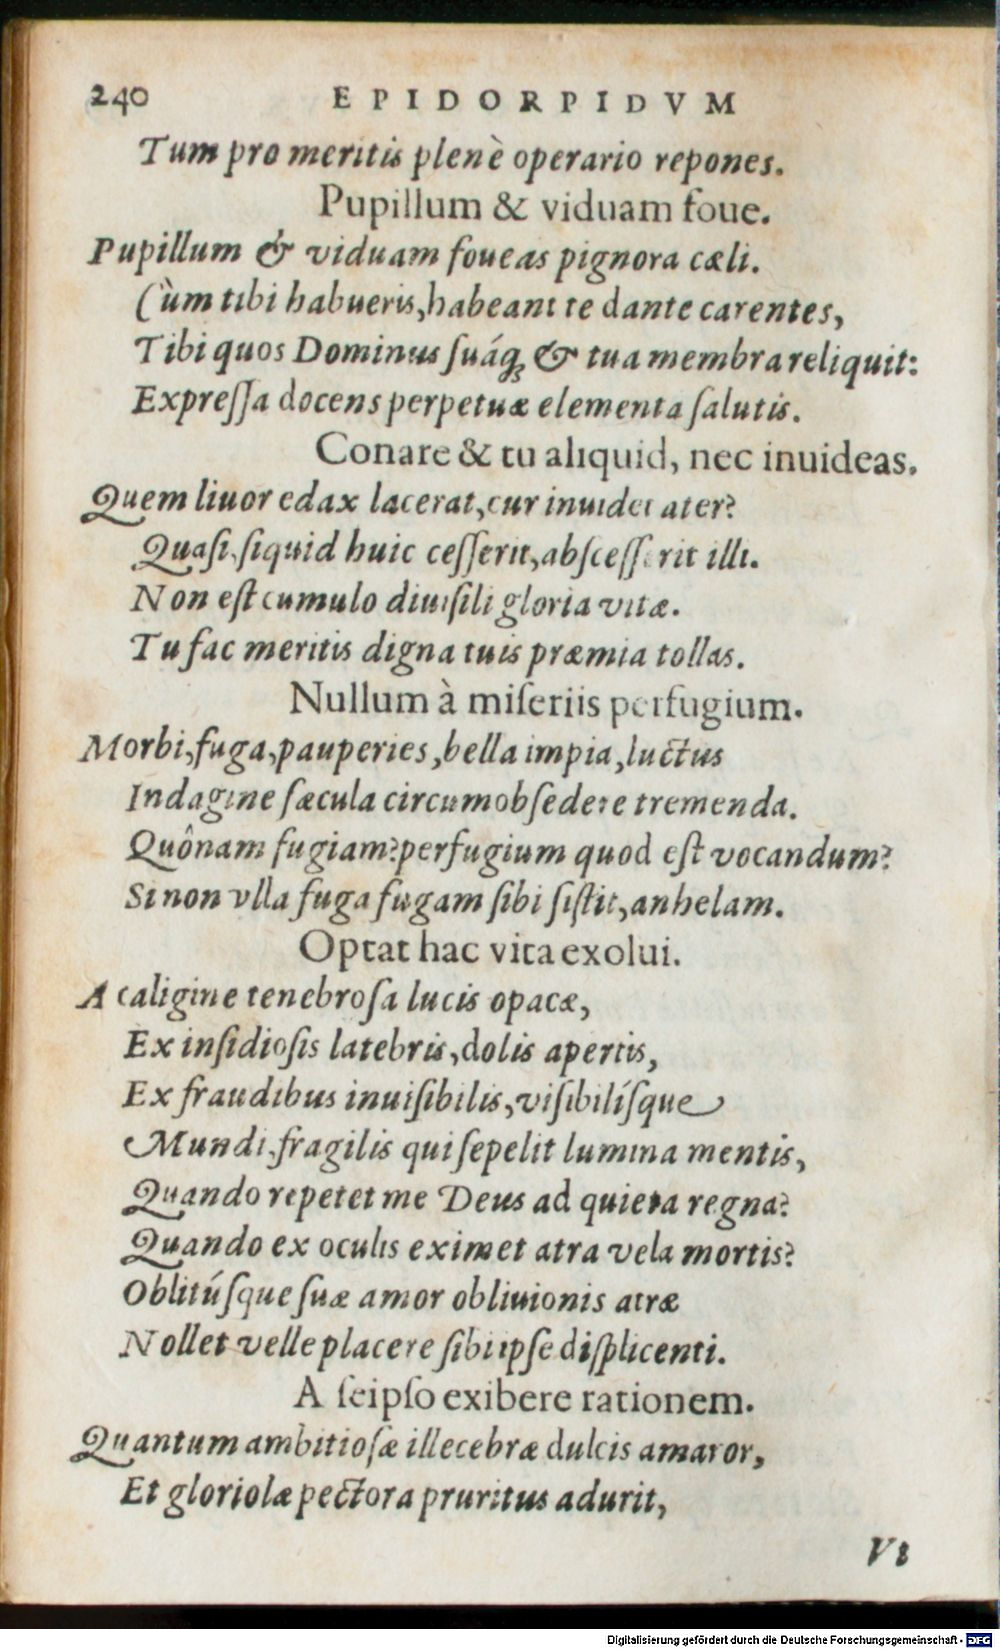 240 EPIDORPIDVM
Tum pro meritis plenè operario repones.
Pupillum & viduam foue.
Pupillum & viduam foueas pignora cæli.
Cùm tibi habueris, habeant te dante carentes,
Tibi quos Dominus ſuáq; & tua membra reliquit:
Expreſſa docens perpetuæ elementa ſalutis.
Conare & tu aliquid, nec inuideas.
Quem liuor edax lacerat, cur inuidet ater?
Quaſi, ſiquid huic ceſſerit, abſceſſerit illi.
Non eſt cumulo diuiſili gloria vitæ.
Tu fac meritis digna tuis præmia tollas.
Nullum à miſeriis perfugium.
Morbi, fuga, pauperies, bella impia, luctus
Indagine ſæcula circumobſedere tremenda.
Quônam fugiam? perfugium quod eſt vocandum?
Si non vlla fuga fugam ſibi ſiſtit, anhelam.
Optat hac vita exolui.
A caligine tenebroſa lucis opacæ,
Ex inſidioſis latebris, dolis apertis,
Ex fraudibus inuiſibilis, viſibilíſque
Mundi, fragilis qui ſepelit lumina mentis,
Quando repetet me Deus ad quieta regna?
Quando ex oculis eximet atra vela mortis?
Oblitúſque ſuæ amor obliuionis atræ
Nollet velle placere ſibi ipſe diſplicenti.
A ſeipſo exibere rationem.
Quantum ambitioſæ illecebræ dulcis amaror,
Et gloriolæ pectora pruritus adurit,
Vt
Digitalisierung gefördert durch die Deutsche Forschungsgemeinschaft - DFG